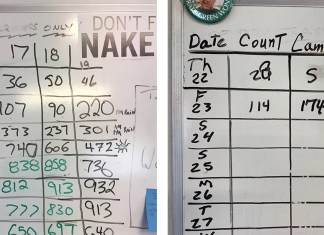 ONLY
DON'T F
NAKE
17 18 19
36 50 46
107 90 220
373 237 301
740 606 472
838 858 736
812 913 932
777 830 913
650 697 640
GREEN
Date Count Cam
Th 22 5
F 23 114 174
S 24
S 25
M 26
T 27